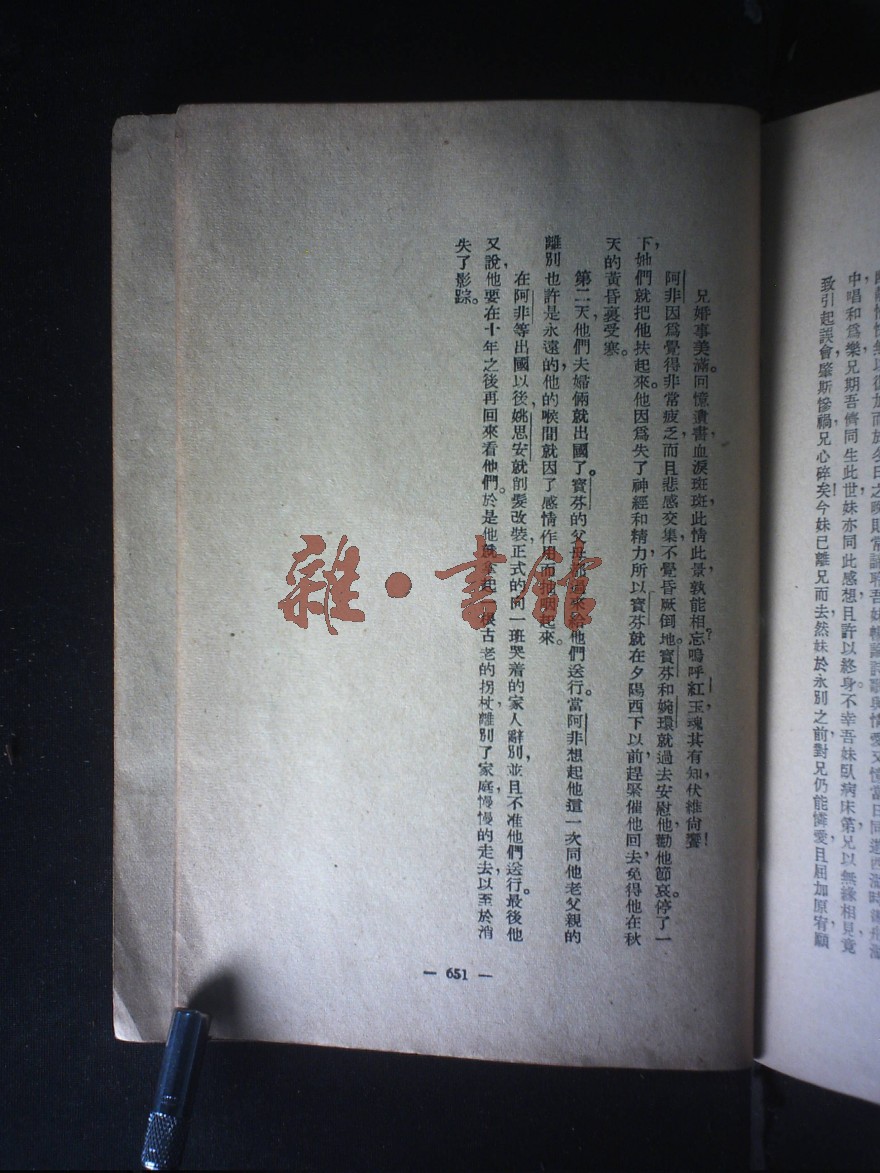 中唱和爲樂，兄期吾儕同生此世，妹亦同此感想，且許以終身。不幸吾妹臥病床第，兄以無緣相見，竟
致引起誤會，肇斯慘禍，兄心碎矣！今妹已離兄而去，然妹於永別之前，對兄仍能憐愛，且屈加原宥，願
兄婚事美滿。回憶遺書，血淚斑斑，此情此景，孰能相忘？嗚呼，紅玉，魂其有知，伏維尙饗！
阿非因爲覺得非常疲乏，而且悲感交集，不覺昏厥倒地。寶芬和婉環就過去安慰他，勸他節哀。停了一
下，她們就把他扶起來。他因爲失了神經和精力，所以寶芬就在夕陽西下以前，趕緊催他回去，免得他在秋
天的黃昏裏受寒。
第二天，他們夫婦倆就出國了。寶芬的父母都過來給他們送行。當阿非想起他這一次同他老父親的
離別也許是永遠的，他的喉間就因了感情作用而抽咽起來。
在阿非等出國以後，姚思安就削髮改裝，正式的向一班哭着的家人辭別，並且不准他們送行。最後他
又說，他要在十年之後再回來看他們。於是他就拿起一根古老的拐杖，離別了家庭，慢慢的走去，以至於消
失了影踪。
— 651 —
雜·書館